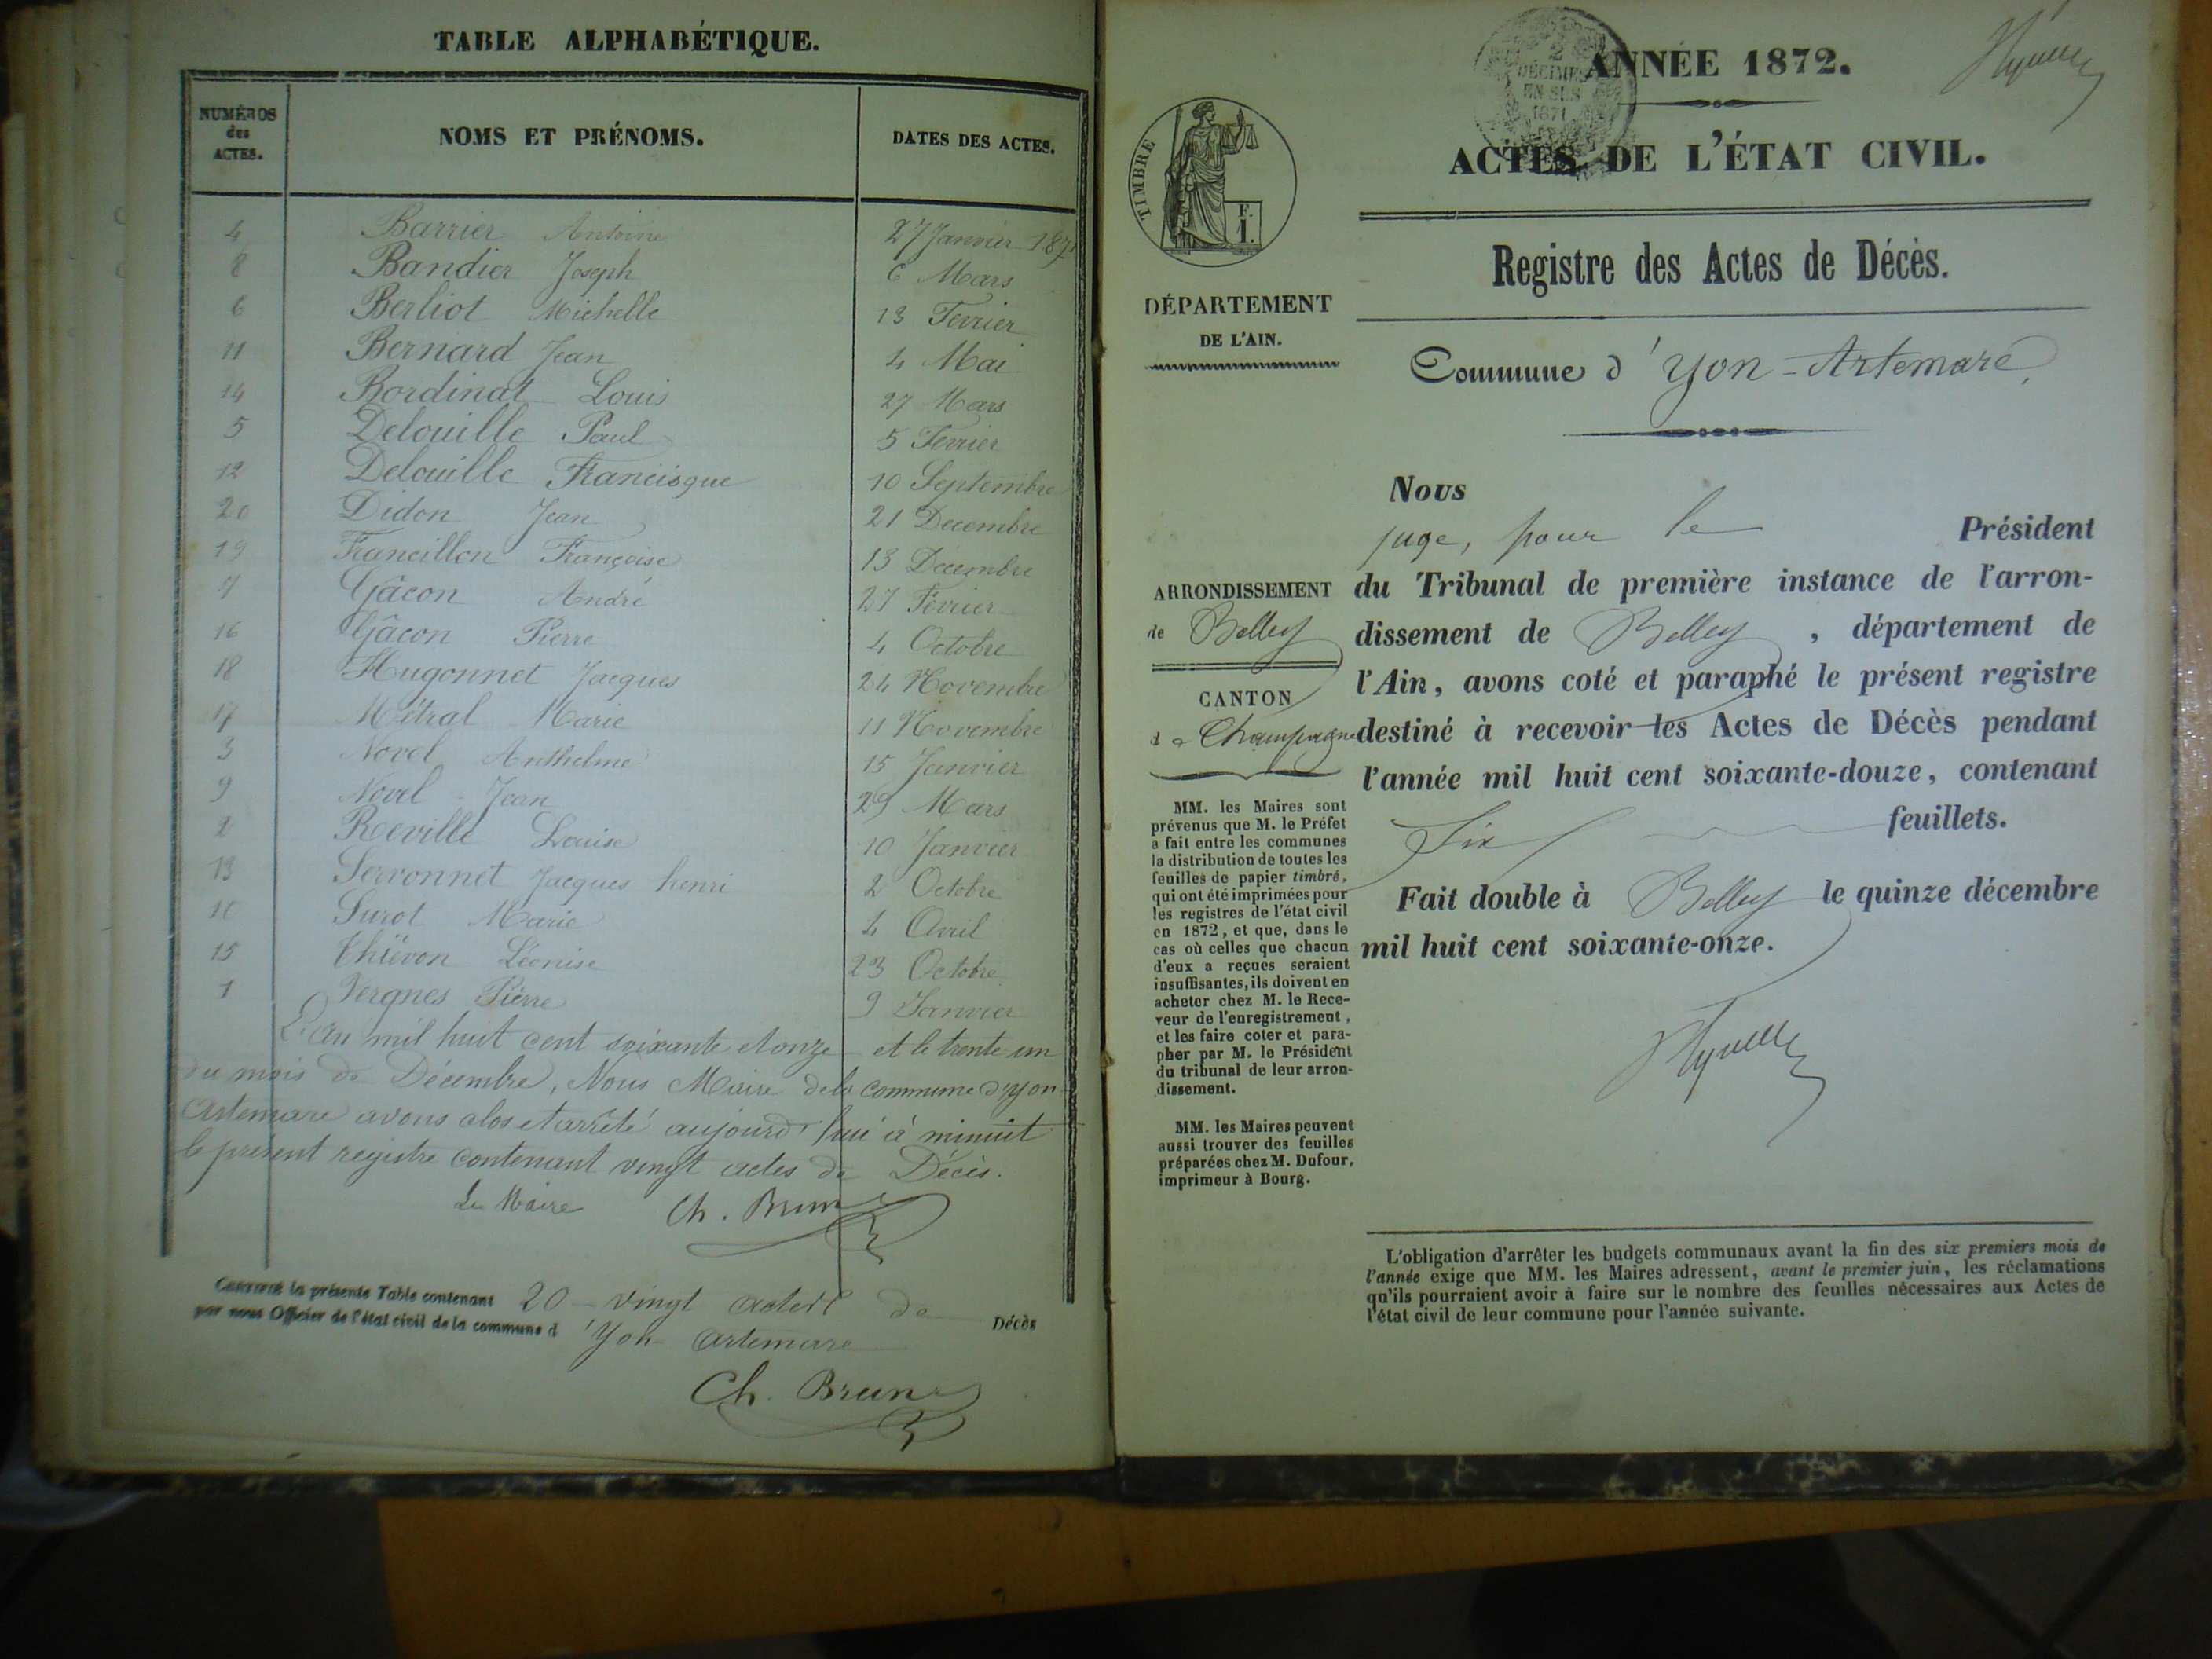 TABLE ALPHABÉTIQUE.
NUMÉROS
des
ACTES.
NOMS ET PRÉNOMS.
DATES DES ACTES.
4 Barrier Antoine 27 Janvier 1871
8 Bandier Joseph 6 Mars
6 Berliot Michelle 13 Fevrier
11 Bernard Jean 4 Mai
14 Bordinat Louis 27 Mars
5 Delouille Paul 5 Fevrier
12 Delouille Francisque 10 Septembre
20 Didon Jean 21 Decembre
19 Francillon Françoise 13 Décembre
7 Gâcon André 27 Fevrier
16 Gâcon Pierre 4 Octobre
18 Hugonnet Jacques 24 Novembre
17 Métral Marie 11 Novembre
3 Novel Anthelme 15 Janvier
9 Novel Jean 29 Mars
2 Reville Louise 10 Janvier
13 Serronnet Jacques henri 2 Octobre
10 Surot Marie 4 Avril
15 Thiévon Léonise 23 Octobre
1 Vergnes Pierre 9 Janvier
L'an mil huit cent soixante et onze et le trente un
du mois de Décembre, Nous Maire de la commune d'yon
artemare avons clos et arrêté aujourd'hui à minuit
le présent registre contenant vingt actes de Décès.
Le Maire Ch. Brun
CERTIFIÉ la présente Table contenant 20 - vingt actes de Décès
par nous Officier de l'état civil de la commune d'Yon artemare
Ch. Brun
2
DÉCIMES
EN SUS
1871
ANNÉE 1872.
ACTES DE L'ÉTAT CIVIL.
TIMBRE
F.
1.
DÉPARTEMENT
DE L'AIN.
Registre des Actes de Décès.
Commune d'Yon - Artemare
ARRONDISSEMENT
de Belley
CANTON
de Champagne
MM. les Maires sont
prévenus que M. le Préfet
a fait entre les communes
la distribution de toutes les
feuilles de papier timbré,
qui ont été imprimées pour
les registres de l'état civil
en 1872, et que, dans le
cas où celles que chacun
d'eux a reçues seraient
insuffisantes, ils doivent en
acheter chez M. le Rece-
veur de l'enregistrement,
et les faire coter et para-
pher par M. le Président
du tribunal de leur arron-
dissement.
MM. les Maires peuvent
aussi trouver des feuilles
préparées chez M. Dufour,
imprimeur à Bourg.
Nous
juge, pour le Président
du Tribunal de première instance de l'arron-
dissement de Belley, département de
l'Ain, avons coté et paraphé le présent registre
destiné à recevoir les Actes de Décès pendant
l'année mil huit cent soixante-douze, contenant
Six feuillets.
Fait double à Belley le quinze décembre
mil huit cent soixante-onze.
L'obligation d'arrêter les budgets communaux avant la fin des six premiers mois de
l'année exige que MM. les Maires adressent, avant le premier juin, les réclamations
qu'ils pourraient avoir à faire sur le nombre des feuilles nécessaires aux Actes de
l'état civil de leur commune pour l'année suivante.